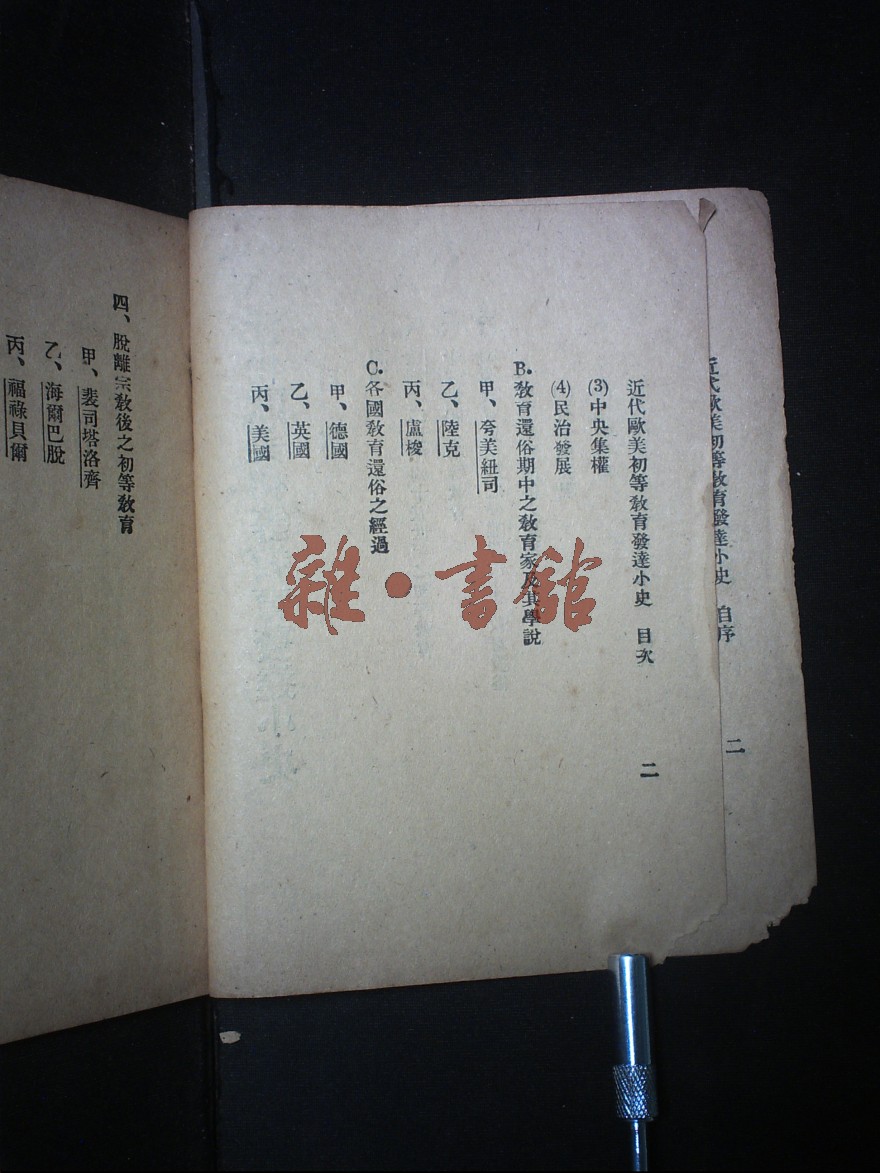 近代歐美初等教育發達小史 自序
二
近代歐美初等教育發達小史 目次
二
(3)中央集權
(4)民治發展
B.教育還俗期中之教育家及其學說
甲、夸美紐司
乙、陸克
丙、盧梭
C.各國教育還俗之經過
甲、德國
乙、英國
丙、美國
四、脫離宗教後之初等教育
甲、裴司塔洛齊
乙、海爾巴脫
丙、福祿貝爾
雜·書館